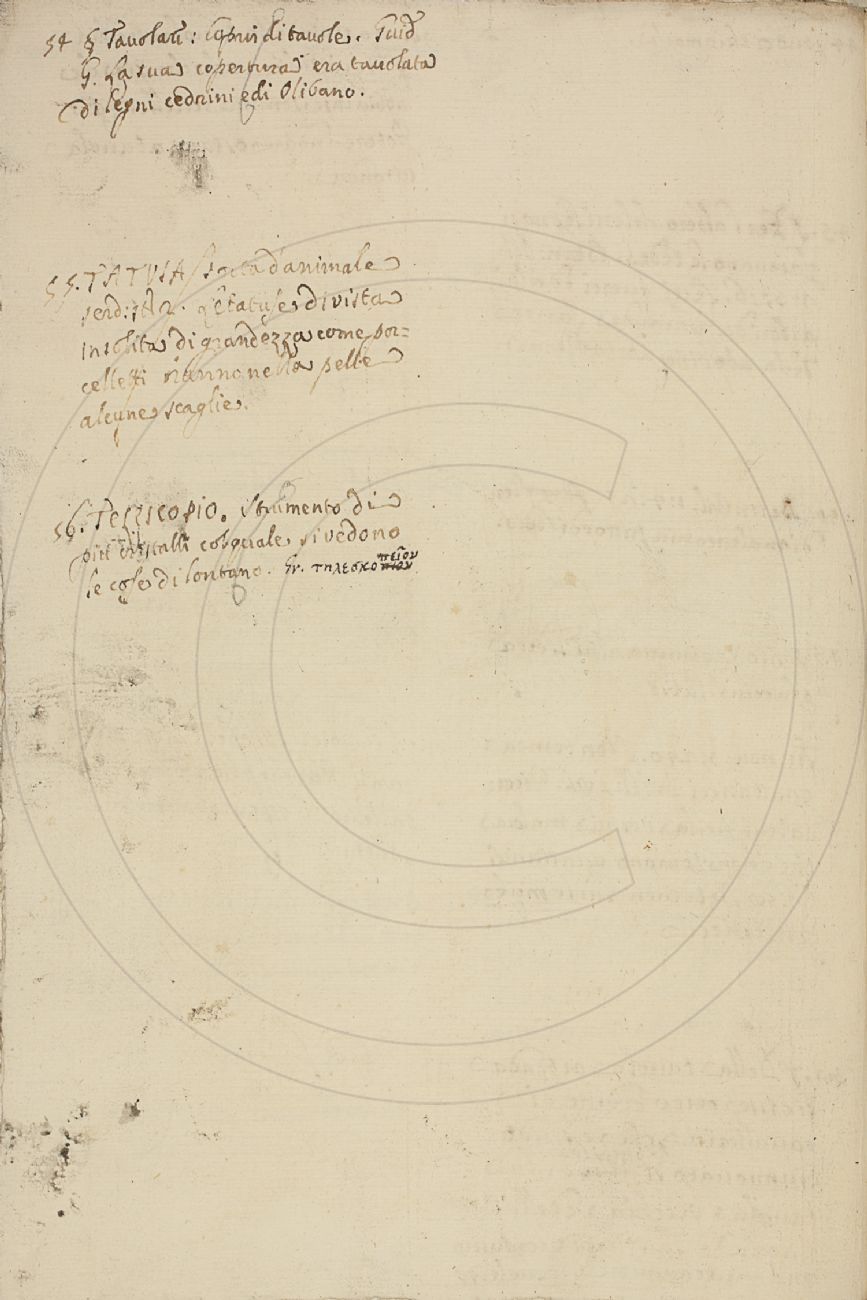 54 § Tavolare: Coprir di tavole. Guid
G. La sua copertura era tavolata
di legni cedrini e di Olibano.
55. TATUSA sorta d'animale
serd: st: 2. le tatuse di vista
insolita di grandezza come por=
celletti hanno nella pelle
alcune scaglie.
56. Telescopio. Strumento di
più cristalli col quale si vedono
le cose di lontano. Gr. τηλεσκο πεῖον